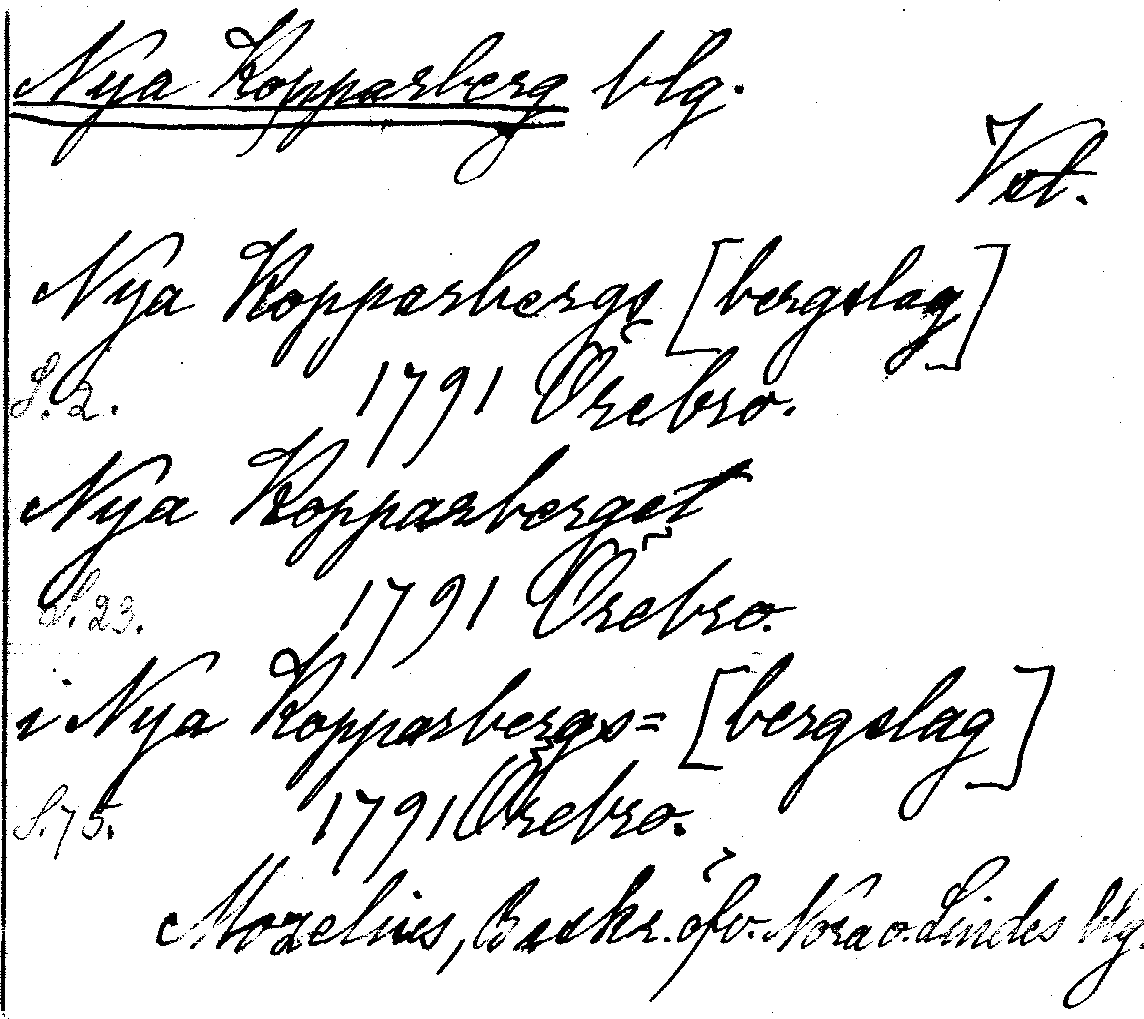 Nya Kopparberg blg.
Vstl.
Nya Kopparbergs [bergslag]
S. 2. 1791 Örebro.
Nya Kopparberget
S. 23. 1791 Örebro.
i Nya Kopparbergs= [bergslag]
S. 75. 1791 Örebro.
Mozelius, Beskr. öfv. Nora o. Lindes blg.